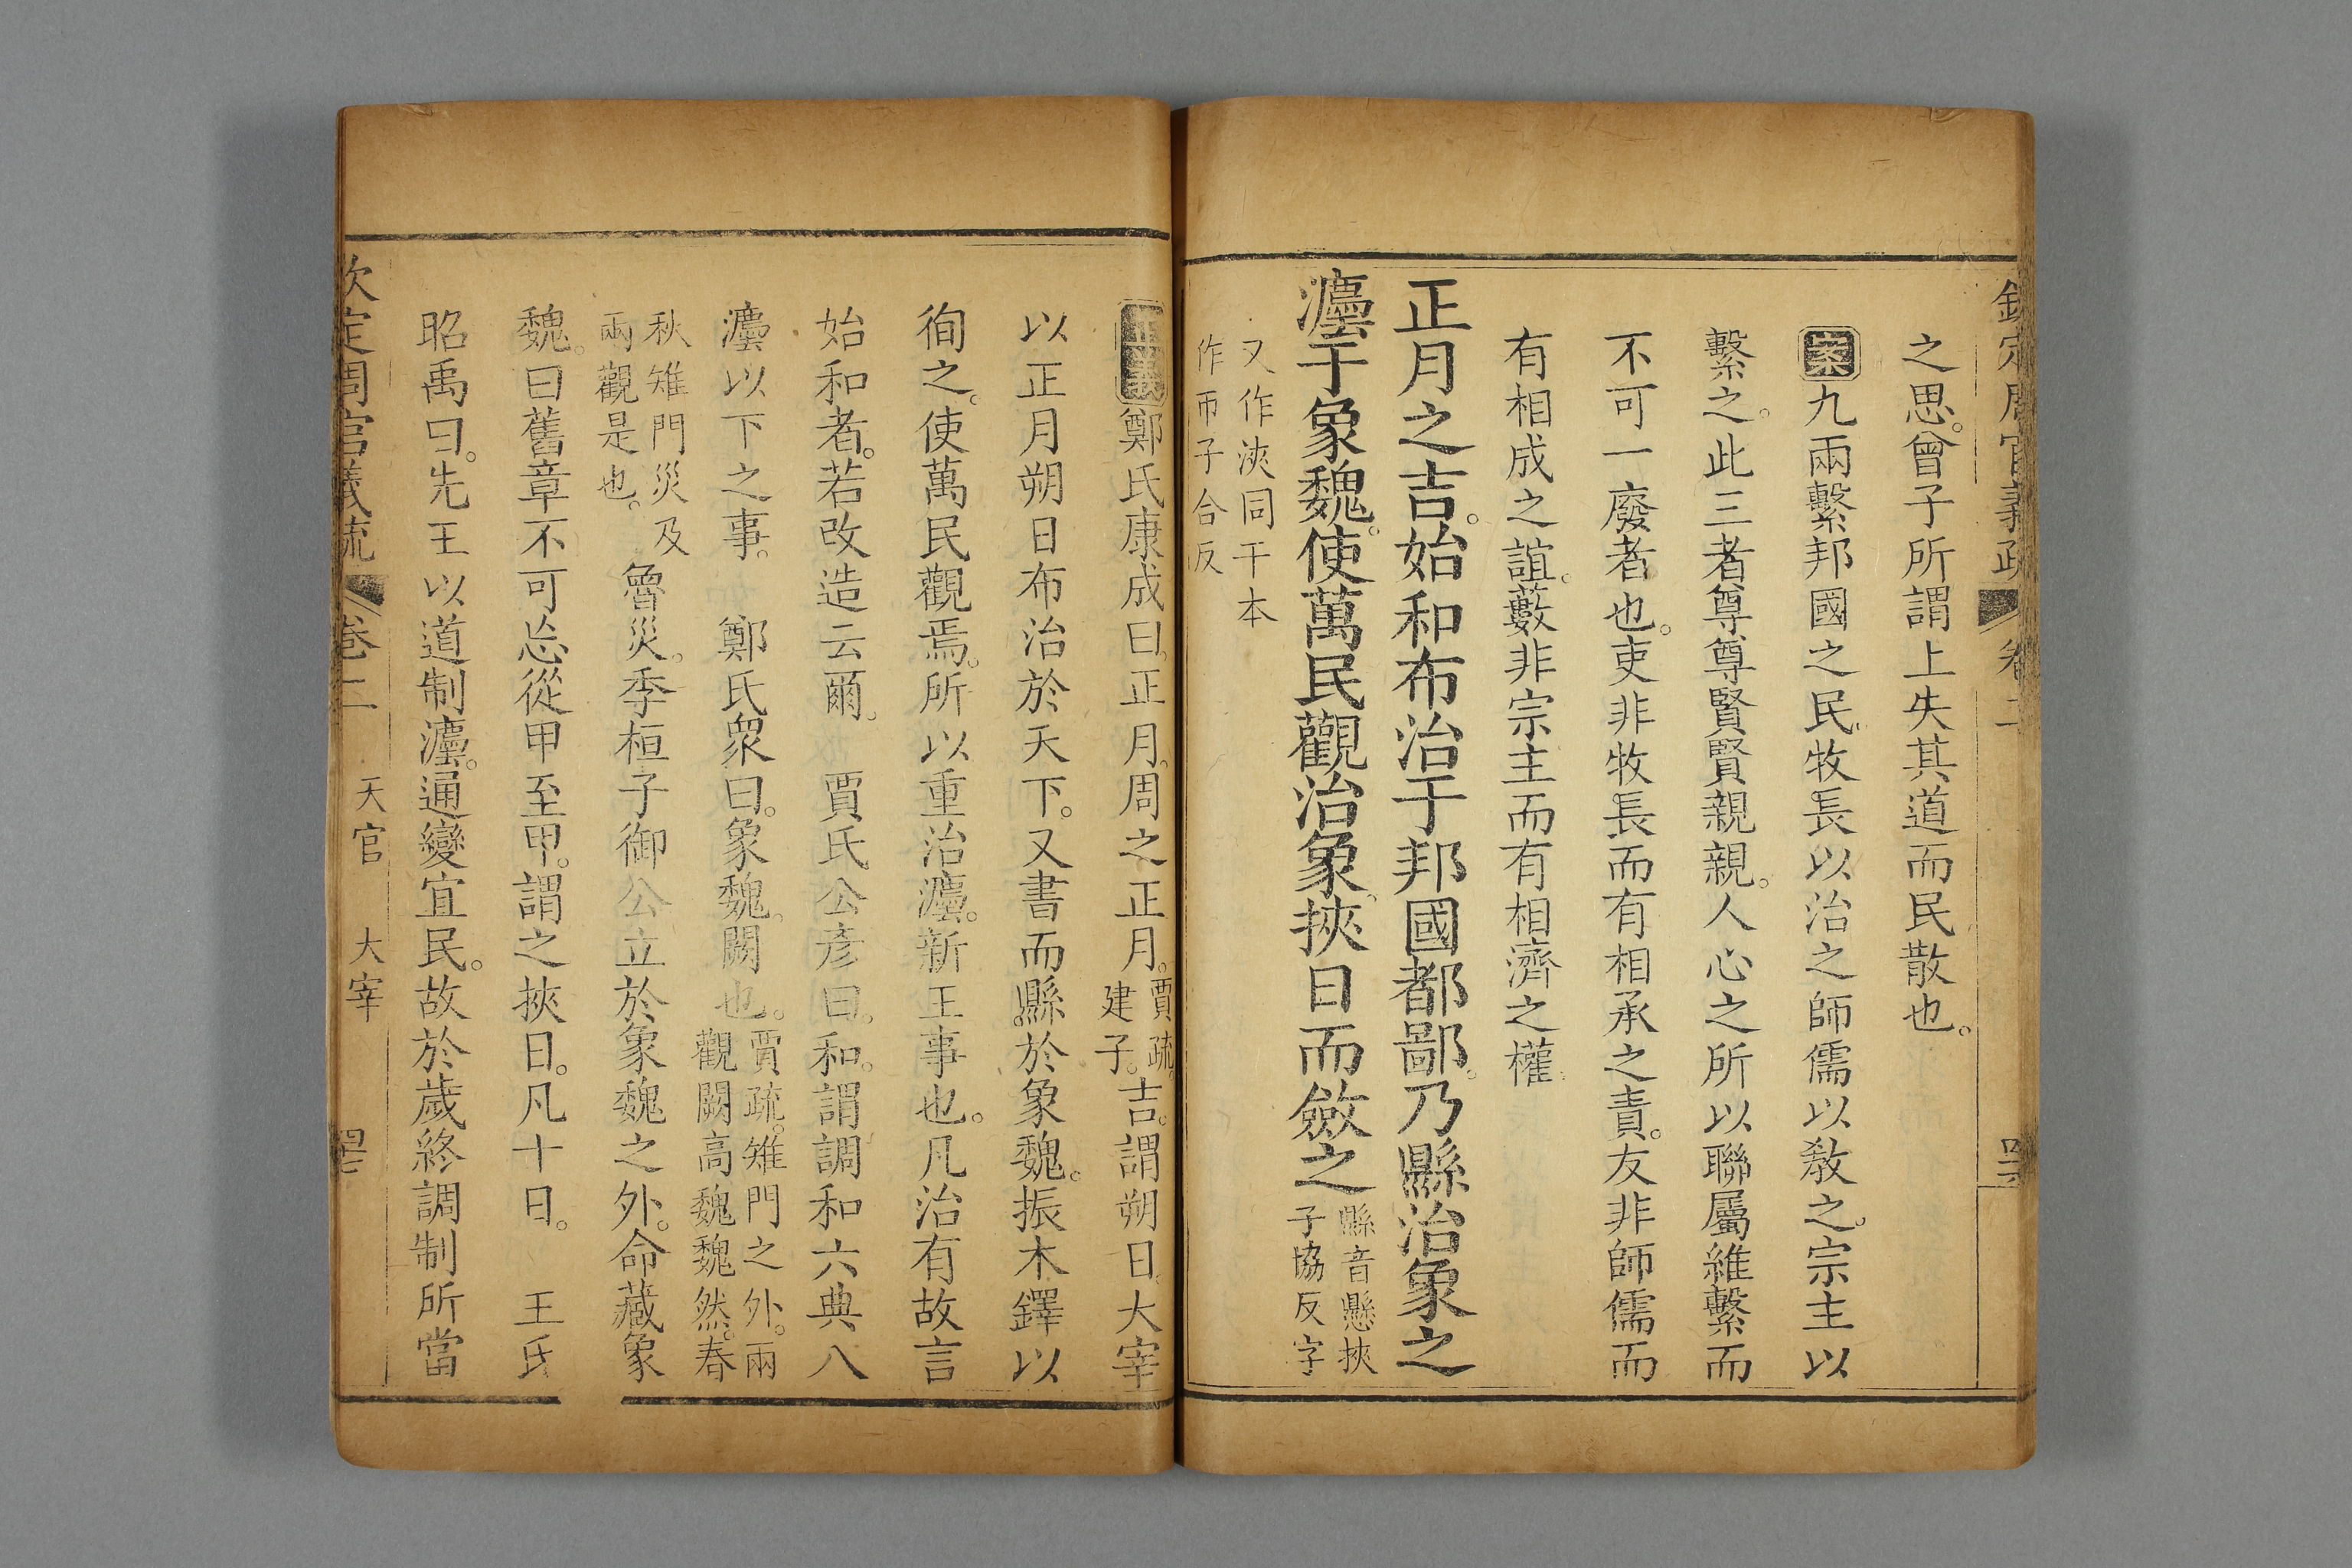 欽定周官義疏 卷二
之思。曾子所謂上失其道而民散也。
案九兩繫邦國之民。牧長以治之師儒以教之。宗主以
繫之。此三者尊尊賢賢親親。人心之所以聯屬維繫而
不可一廢者也。吏非牧長而有相承之責。友非師儒而
有相成之誼。藪非宗主而有相濟之權。
正月之吉。始和布治于邦國都鄙。乃縣治象之
灋于象魏。使萬民觀治象。挾日而斂之
縣音懸挾
子協反字
又作浹同干本
作帀子合反
正義鄭氏康成曰。正月。周之正月。
賈疏。
建子。
吉。謂朔日。大宰
以正月朔日布治於天下。又書而縣於象魏。振木鐸以
徇之。使萬民觀焉。所以重治灋。新王事也。凡治有故言
始和者。若改造云爾。 賈氏公彥曰。和。謂調和六典八
灋以下之事。 鄭氏衆曰。象魏。闕也。
賈疏。雉門之外。兩
觀闕高魏魏然。春
秋雉門災及
兩觀是也。
魯災。季桓子御公立於象魏之外。命藏象
魏。曰舊章不可忘從甲至甲。謂之挾日。凡十日。 王氏
昭禹曰。先王以道制灋。通變宜民。故於歲終調制所當
欽定周官義疏 卷二 天官 大宰